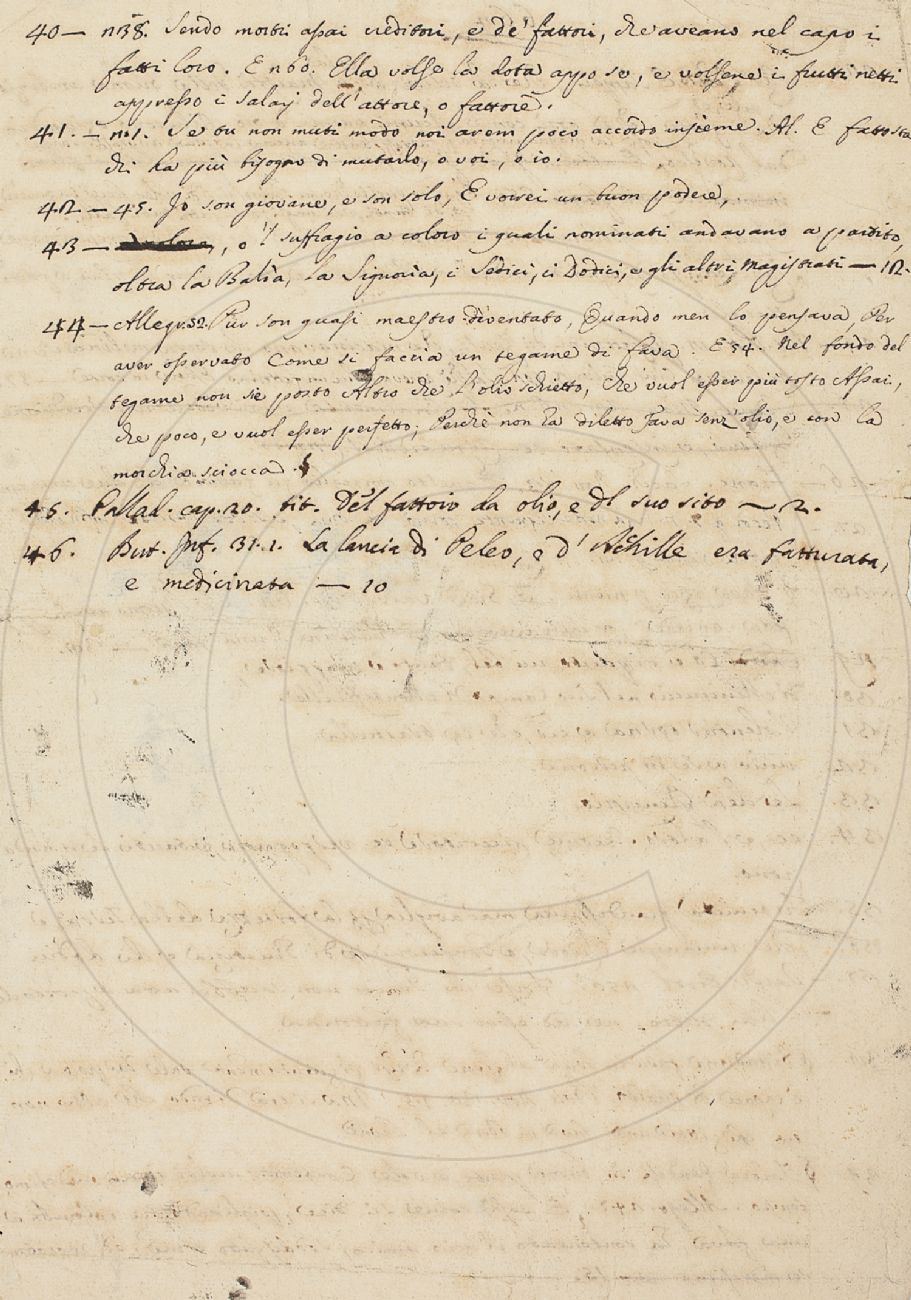 40 — n 138. Sendo morti assai creditori, e de' fattori, che aveano nel capo i
fatti loro. E n 60. Ella volse la dota appo se, e volsene i frutti netti
appresso i salarj dell'attore, o fattore.
41. — n. 1. Se tu non muti modo noi arem poco accordo insieme. Al. E fatto sta
chi ha più bisogno di mutarlo, o voi, o io.
42 — 45. Io son giovane, e son solo, E vorrei un buon podere,
43 — , o 'l suffragio a coloro i quali nominati andavano a partito,
oltra la Balìa, la Signoria, i Sedici, i Dodici, e gli altri Magistrati — 12.
44 — Allegr. 52. Pur son quasi maestro diventato, Quando men lo pensava, Per
aver osservato Come si faccia un tegame di fava. E 54. Nel fondo del
tegame non sie posto Altro che l'olio schietto, che vuol esser più tosto Assai,
che poco, e vuol esser perfetto; Perchè non ha diletto Fava senz'olio, e con la
morchia sciocca.
45. Pallad. cap. 20. tit. Del fattoio da olio, e dl suo sito — 2.
46. But. Inf. 31. 1. La lancia di Peleo, e d'Achille era fatturata,
e medicinata — 10